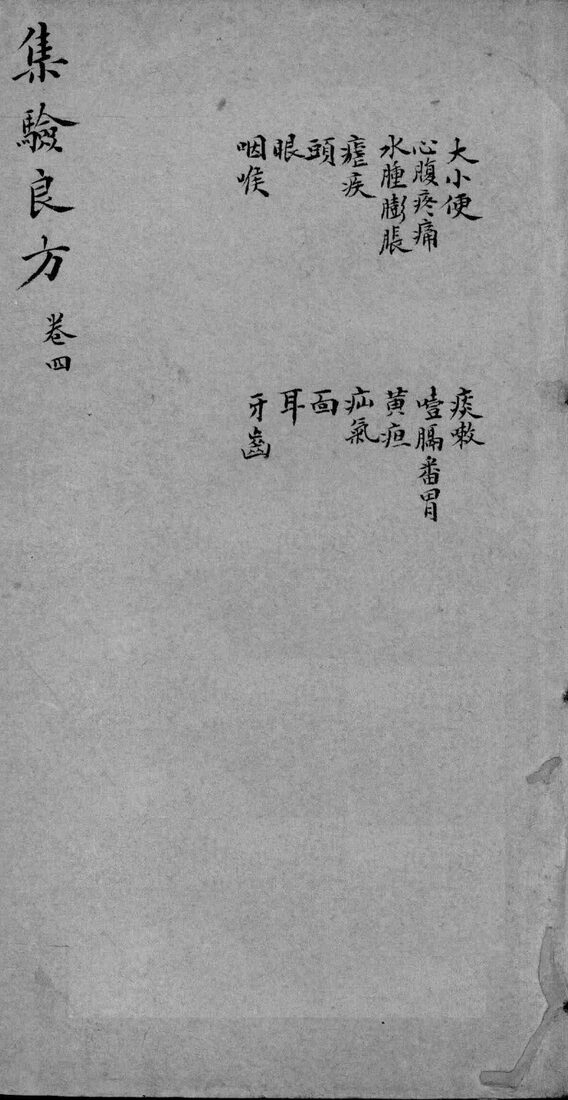 大小便
心腹疼痛
水腫膨脹
瘧疾
頭
眼
咽喉
痰嗽
噎膈番胃
黄疸
疝氣
面
耳
牙齒
集驗良方 卷四